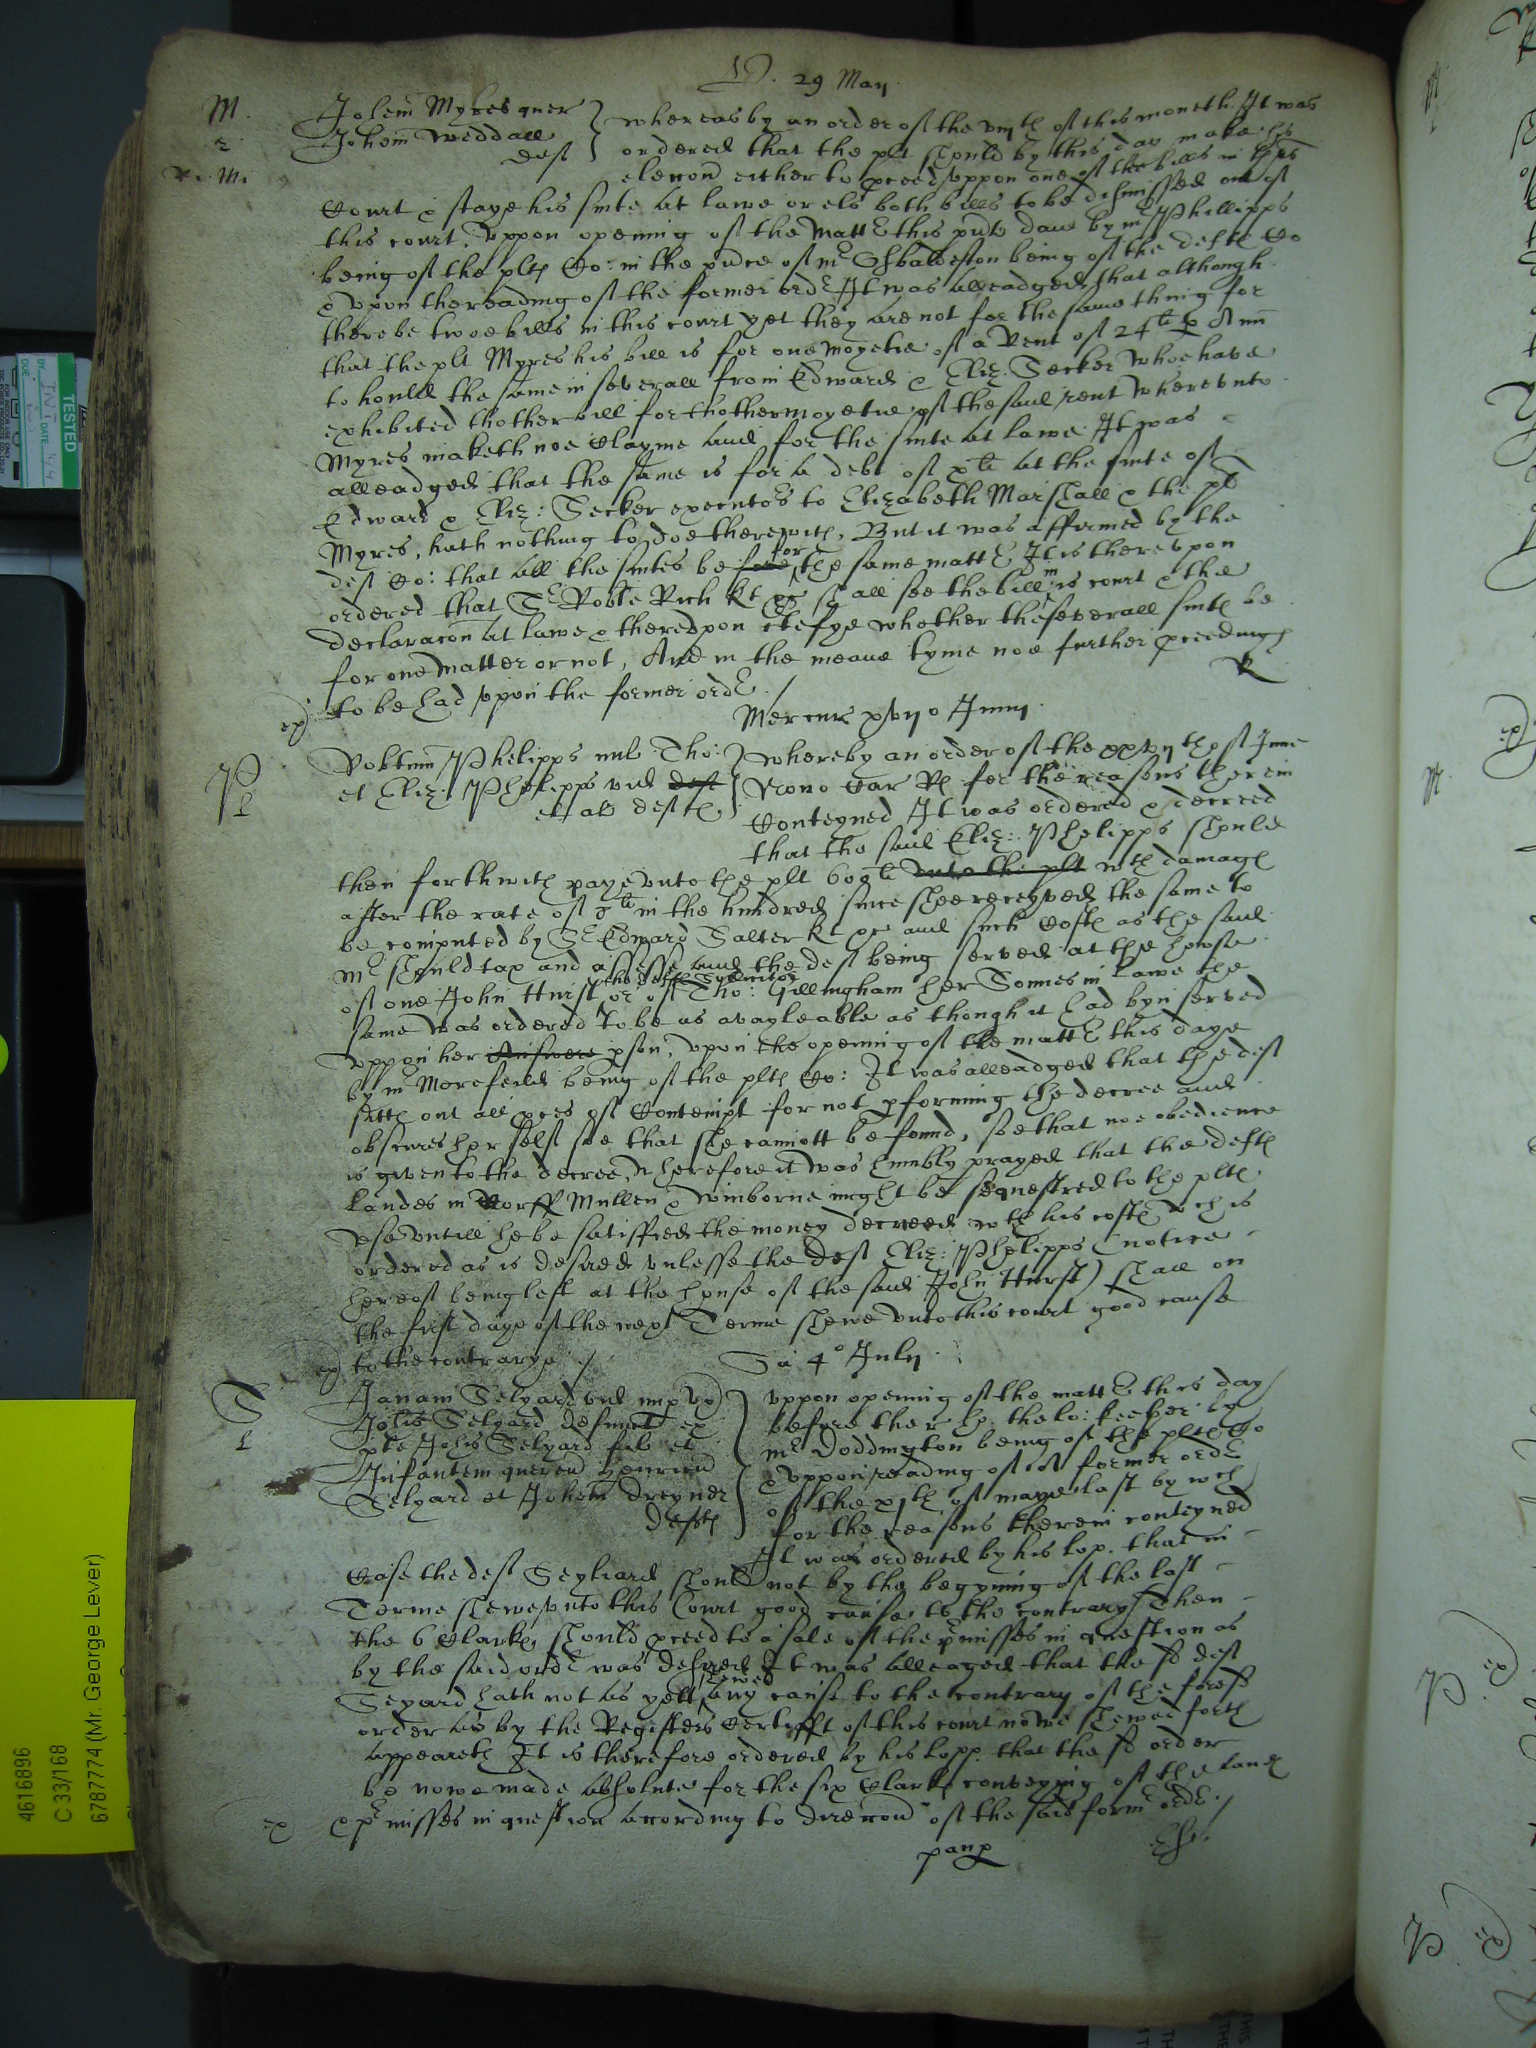 29 Maij
M.
Johem Myres quer
Johem Weddall
deft
whereas by an order of the viijth of this moneth It was
ordered that the plt should by this day make his
eleccon either to pceed uppon one of the bills in this
Court & staye his suite at lawe or els both bills to be dismissed out of
this court, Uppon opening of the matter this pnte daie by mr Phillipps
being of the plts Co: in the pnce of mr being of the defts Co
& upon the reading of the former ordr It was alleadged that although
there be twoe bills in this court yet they are not for the same thing for
that the plt Myres his bill is for one moyetie of a Rent of 24li p Ann
to hould the same in severall from Edward & Eliz: Secker whoe have
exhibited thother bill for thother moyetie of the said rent whereunto
Myres maketh noe Clayme and for the suite at lawe It was
alleadged that the same is for a debt of xli at the suite of
Edward & Eliz: Secker executors to Elizabeth Marshall & the plt
Myres, hath nothing to doe therewith, But it was affirmed by the
deft Co: that all the suites be for the same matter It is thereupon
ordered that Sr Robte Rich kt shall see the bill in this court & the
declaracon at lawe & thereupon ctefye whether the severall suits be
for one matter or not, And in the meane tyme noe further pceedings
to be had upon the former ordr /
R
Mercurii xviijo Junij
P
Robtum Phelipps mil Tho:
et Eliz: Phelipps vid deft
et al defts
Whereby an order of the xxvijth of June
Nono Car Rs for the reasons therein
Conteyned It was ordered & decreed
that the said Eliz: Phelipps should
then forthwith paye unto the plt 600li unto the plt wth damags
after the rate of 8li in the hundred since shee receyved the same to
be computed by Sr Edward Salter kt and such Costs as the said
mr should tax and assesse and the deft being served at the howse
of one John Hurst the defts Sollicitor or of Tho: Gillingham her Sonnes in lawe the
same was ordered to be as avayleable as though it had byn served
uppon her Answere pson, upon the opening of the matter this daye
by mr Morefeild being of the plts Co: It was alleadged that the deft
sitts out all pces of Contempt for not pforming the decree and
obscures her self soe that she cannott be found, soe that noe obedience
is given to the decree, Wherefore it was humbly prayed that the defts
landes in Corff Mullen & Winborne might be sequestred to the plts
use untill he be satisfied the money decreed wth his costs wch is
ordered as is desired unlesse the deft Eliz: Phelipps (notice
hereof being left at the house of the said John Hurst) shall on
the first daye of the next Terme shewe unto this court good cause
to the contrarye /
4o Julij
S
Janam Selyard vid nup ux
Johis Selyard defunct ex
pte Johis Selyard fil et
Infantem queren Henricum
Selyard et Johem Dreyner
Defts
Uppon opening of the matter this day
before the r. ho. the lo: keeper by
mr Doddington being of the plts Co
& uppon reading of former ordr
of the xjth of maye last by wch
for the reasons therein conteyned
It was ordered by his lop. that in
Case the deft Seyliard should not by the begynning of the last
Terme shewe unto this Court good cause to the contrary Then
the 6 Clarks should pceed to a sale of the pmisses in question as
by the said ordr was desired It was alleaged that the sd deft
Seyard hath not as yett shewed any cause to the contrary of the foresd
order as by the Registers Certifft of this court nowe shewed forth
appeareth It is therefore ordered by his lopp. that the sd order
be nowe made absolute for the six Clarks conveying of the lands
& pmisses in question according to direccon of the said formr ordr. /
TESTED
4616896
C 33/168
67877774 (Mr. George Lever)